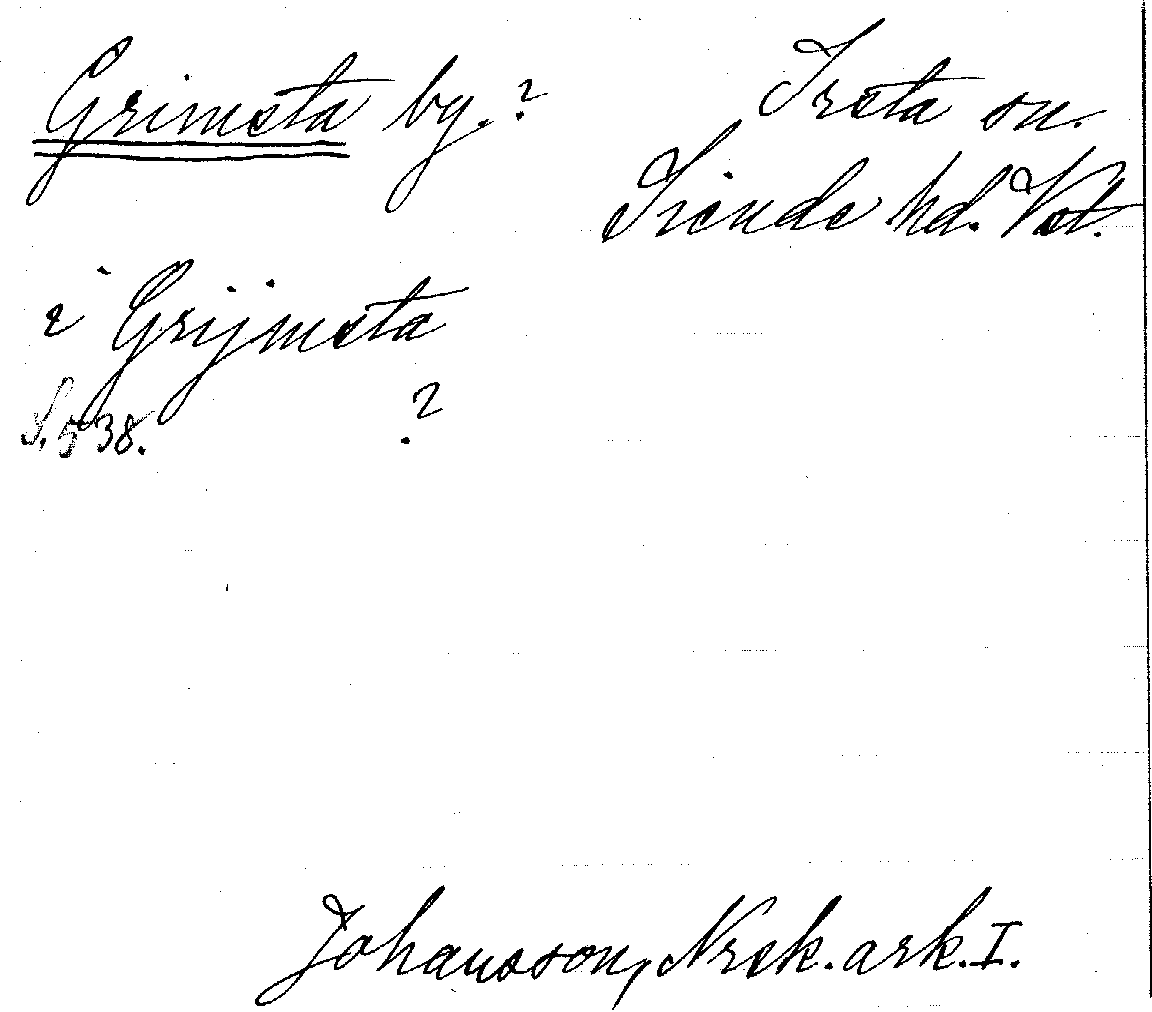 Grimsta by.?
Irsta sn.
Siende hd. Vst.
i Grijmsta
S. 538. ?
Johansson, Nrsk. ark. I.